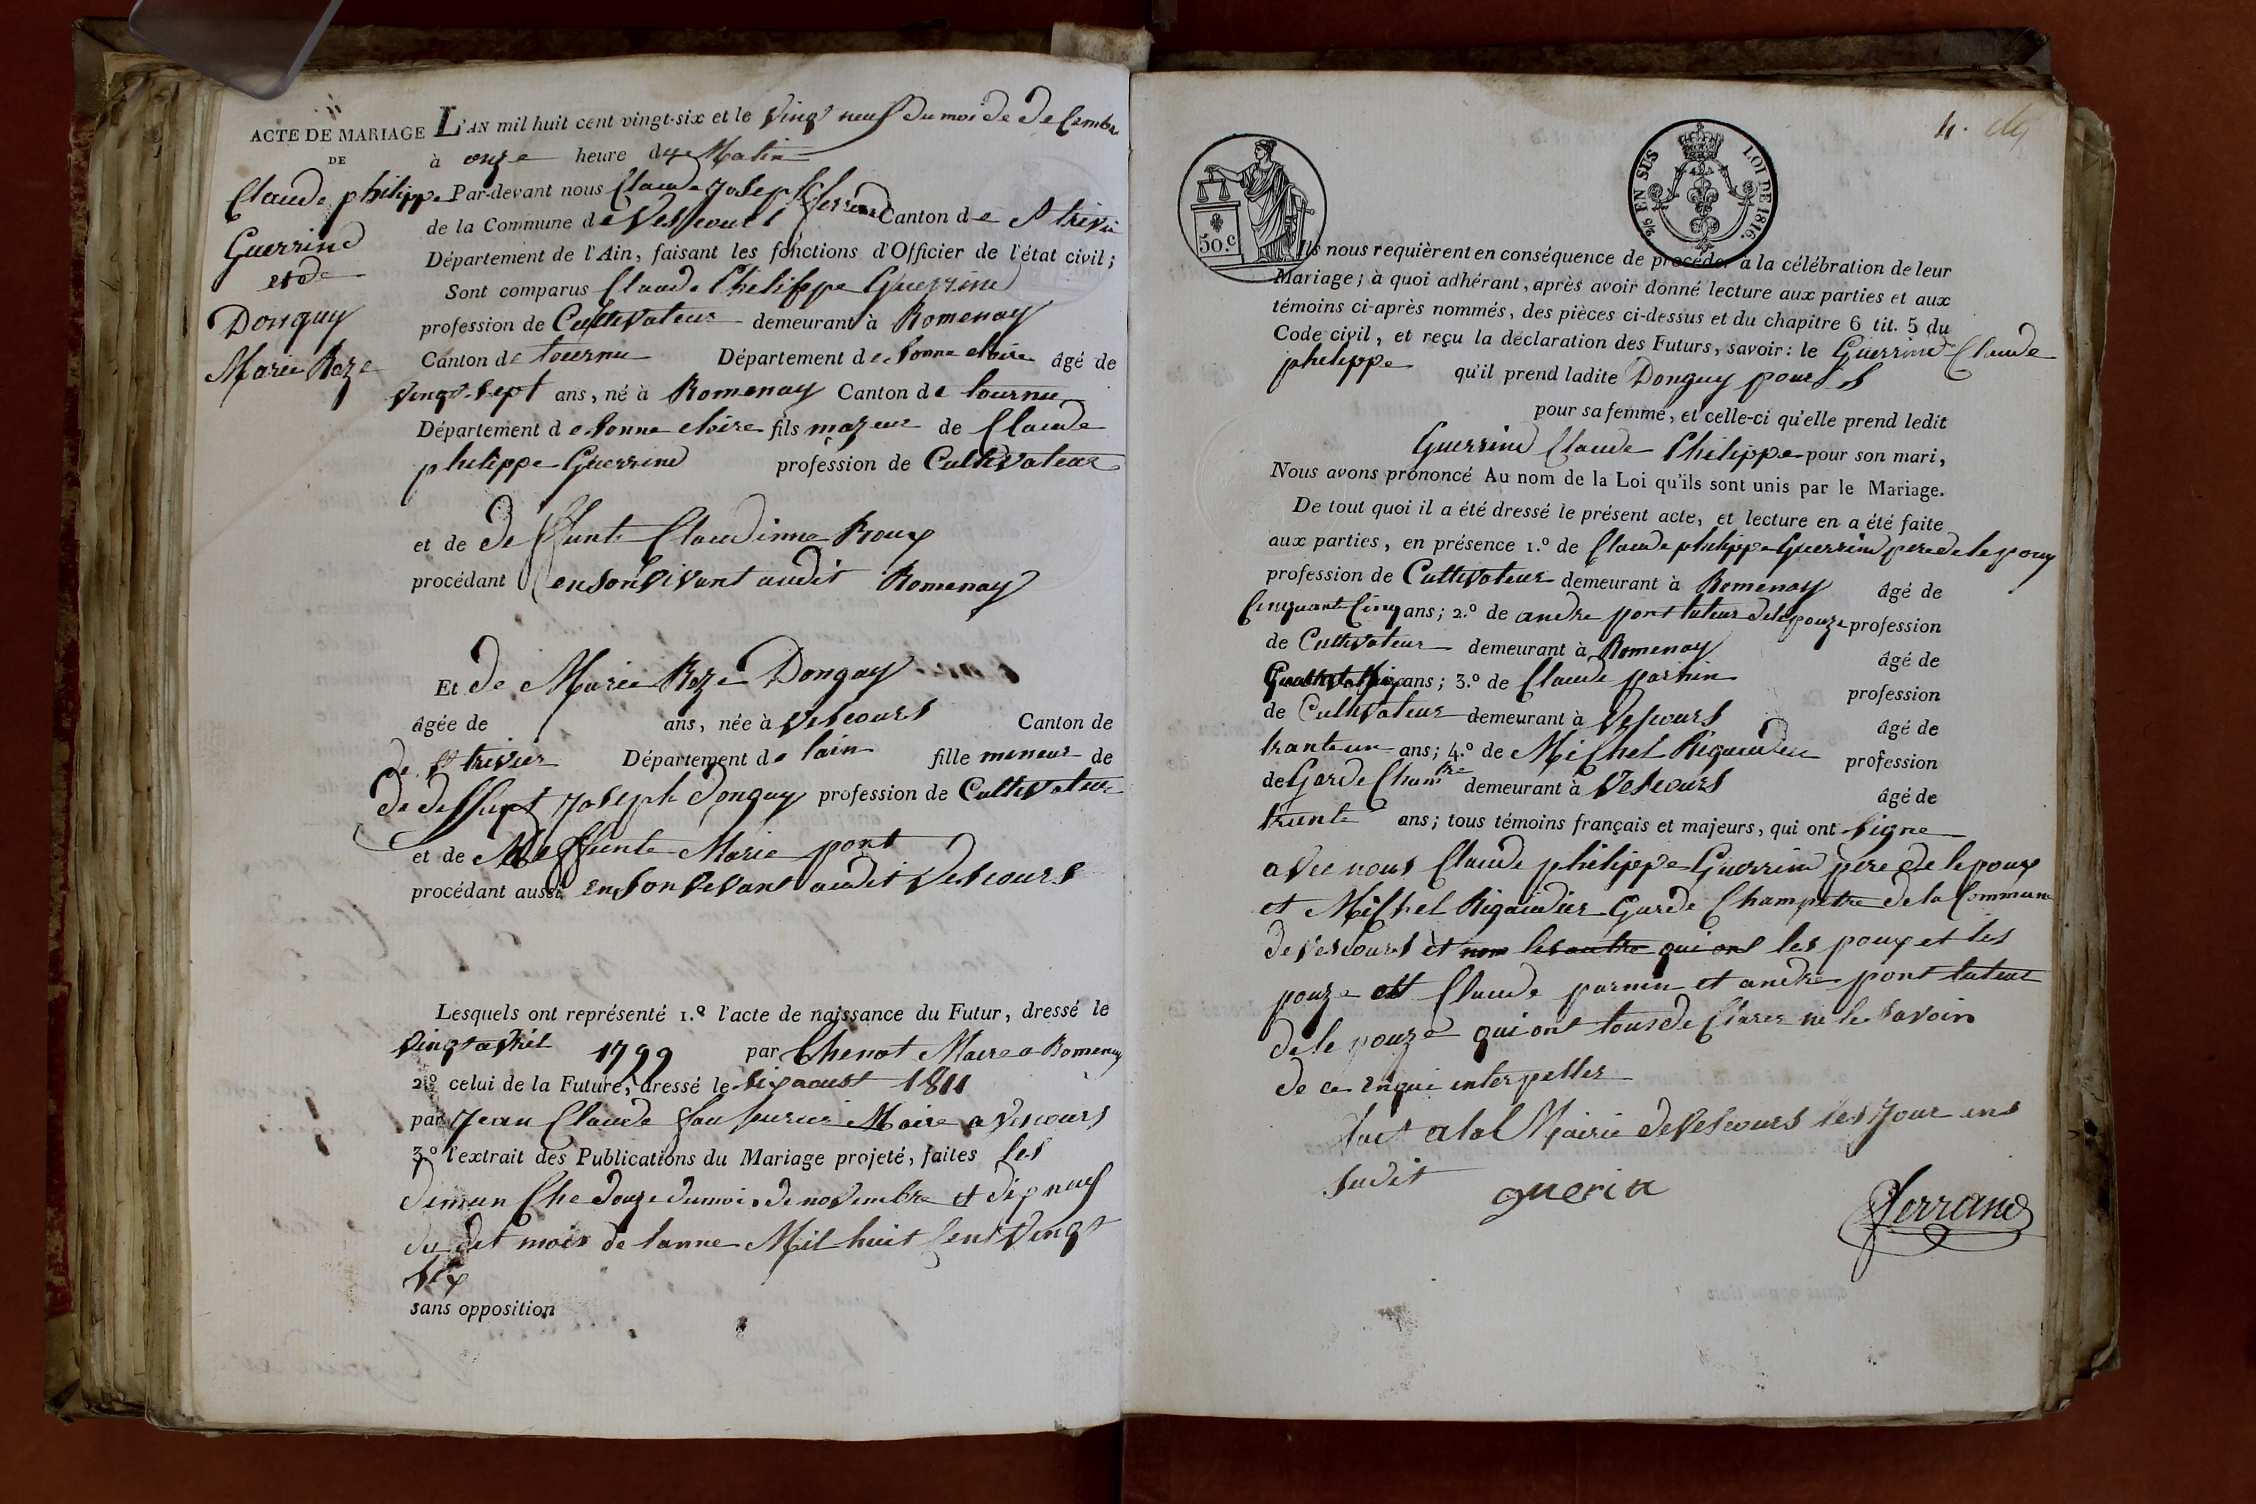 ACTE DE MARIAGE
DE
Claude philippe
Guerrind
et de
Donguy
Marie Roze
L'AN mil huit cent vingt-six et le vingt neuf du mois de décembre
à onze heure du Matin
Par-devant nous Claude Joseph ferrand
de la Commune de Vescours Canton de St trivie
Département de l'Ain, faisant les fonctions d'Officier de l'état civil;
Sont comparus Claude Philippe Guerrind
profession de Cultivateur demeurant à Romenay
Canton de tournu Département de Sonne eloire âgé de
vingt-sept ans, né à Romenay Canton de tournu
Département de Sonne eloire fils mageur de Claude
philippe Guerrind profession de Cultivateur
et de deffunte Claudinne Roux
procédant en son vivant audit Romenay
Et de Marie Roze Donguy
âgée de ans, née à Vescours Canton de
de St trivier Département de lain fille mineur de
de deffunt Joseph donguy profession de Cultivateur
et de deffunte Marie pont
procédant aussi en son vivant audit Vescours
Lesquels ont représenté 1.º l'acte de naissance du Futur, dressé le
vingt avril 1799 par Chenot Maire a Romenay
2.º celui de la Future, dressé le six aoust 1811
par Jean Claude Maire a Vescours
3.º l'extrait des Publications du Mariage projeté, faites les
dimanche douze du mois de novembre et dixneuf
du dit mois de lanne Mil huit Cent vingt
six
sans opposition
4.
50.C
2/10 EN SUS LOI DE 1816.
Ils nous requièrent en conséquence de procéder à la célébration de leur
Mariage; à quoi adhérant, après avoir donné lecture aux parties et aux
témoins ci-après nommés, des pièces ci-dessus et du chapitre 6 tit. 5 du
Code civil, et reçu la déclaration des Futurs, savoir: le Guerrind Claude
philippe qu'il prend ladite Donguy pour s
pour sa femme, et celle-ci qu'elle prend ledit
Guerrind Claude Philippe pour son mari,
Nous avons prononcé Au nom de la Loi qu'ils sont unis par le Mariage.
De tout quoi il a été dressé le présent acte, et lecture en a été faite
aux parties, en présence 1.º de Claude philippe Guerrind pere de lepoux
profession de Cultivateur demeurant à Romenay âgé de
Cinquante Cinq ans; 2.º de andre pont tuteur de lepouze profession
de Cultivateur demeurant à Romenay âgé de
ans; 3.º de Claude parnin profession
de Cultivateur demeurant à Vescours âgé de
trante un ans; 4.º de Michel Rigaudier profession
de Garde Champtre demeurant à Vescours âgé de
trente ans; tous témoins français et majeurs, qui ont signe
avec nous Claude philippe Guerrind pere de lepoux
et Michel Rigaudier Garde Champetre de la Commune
de vescours et non les autre qui ont les poux et les
pouze et Claude parnin et andre pont tuteur
de le pouze qui ont tous de Clarer ne le savoir
de ce enqui interpeller
fait a la Mairie de Vescours les Jour ens
sudit
guerin
ferrand